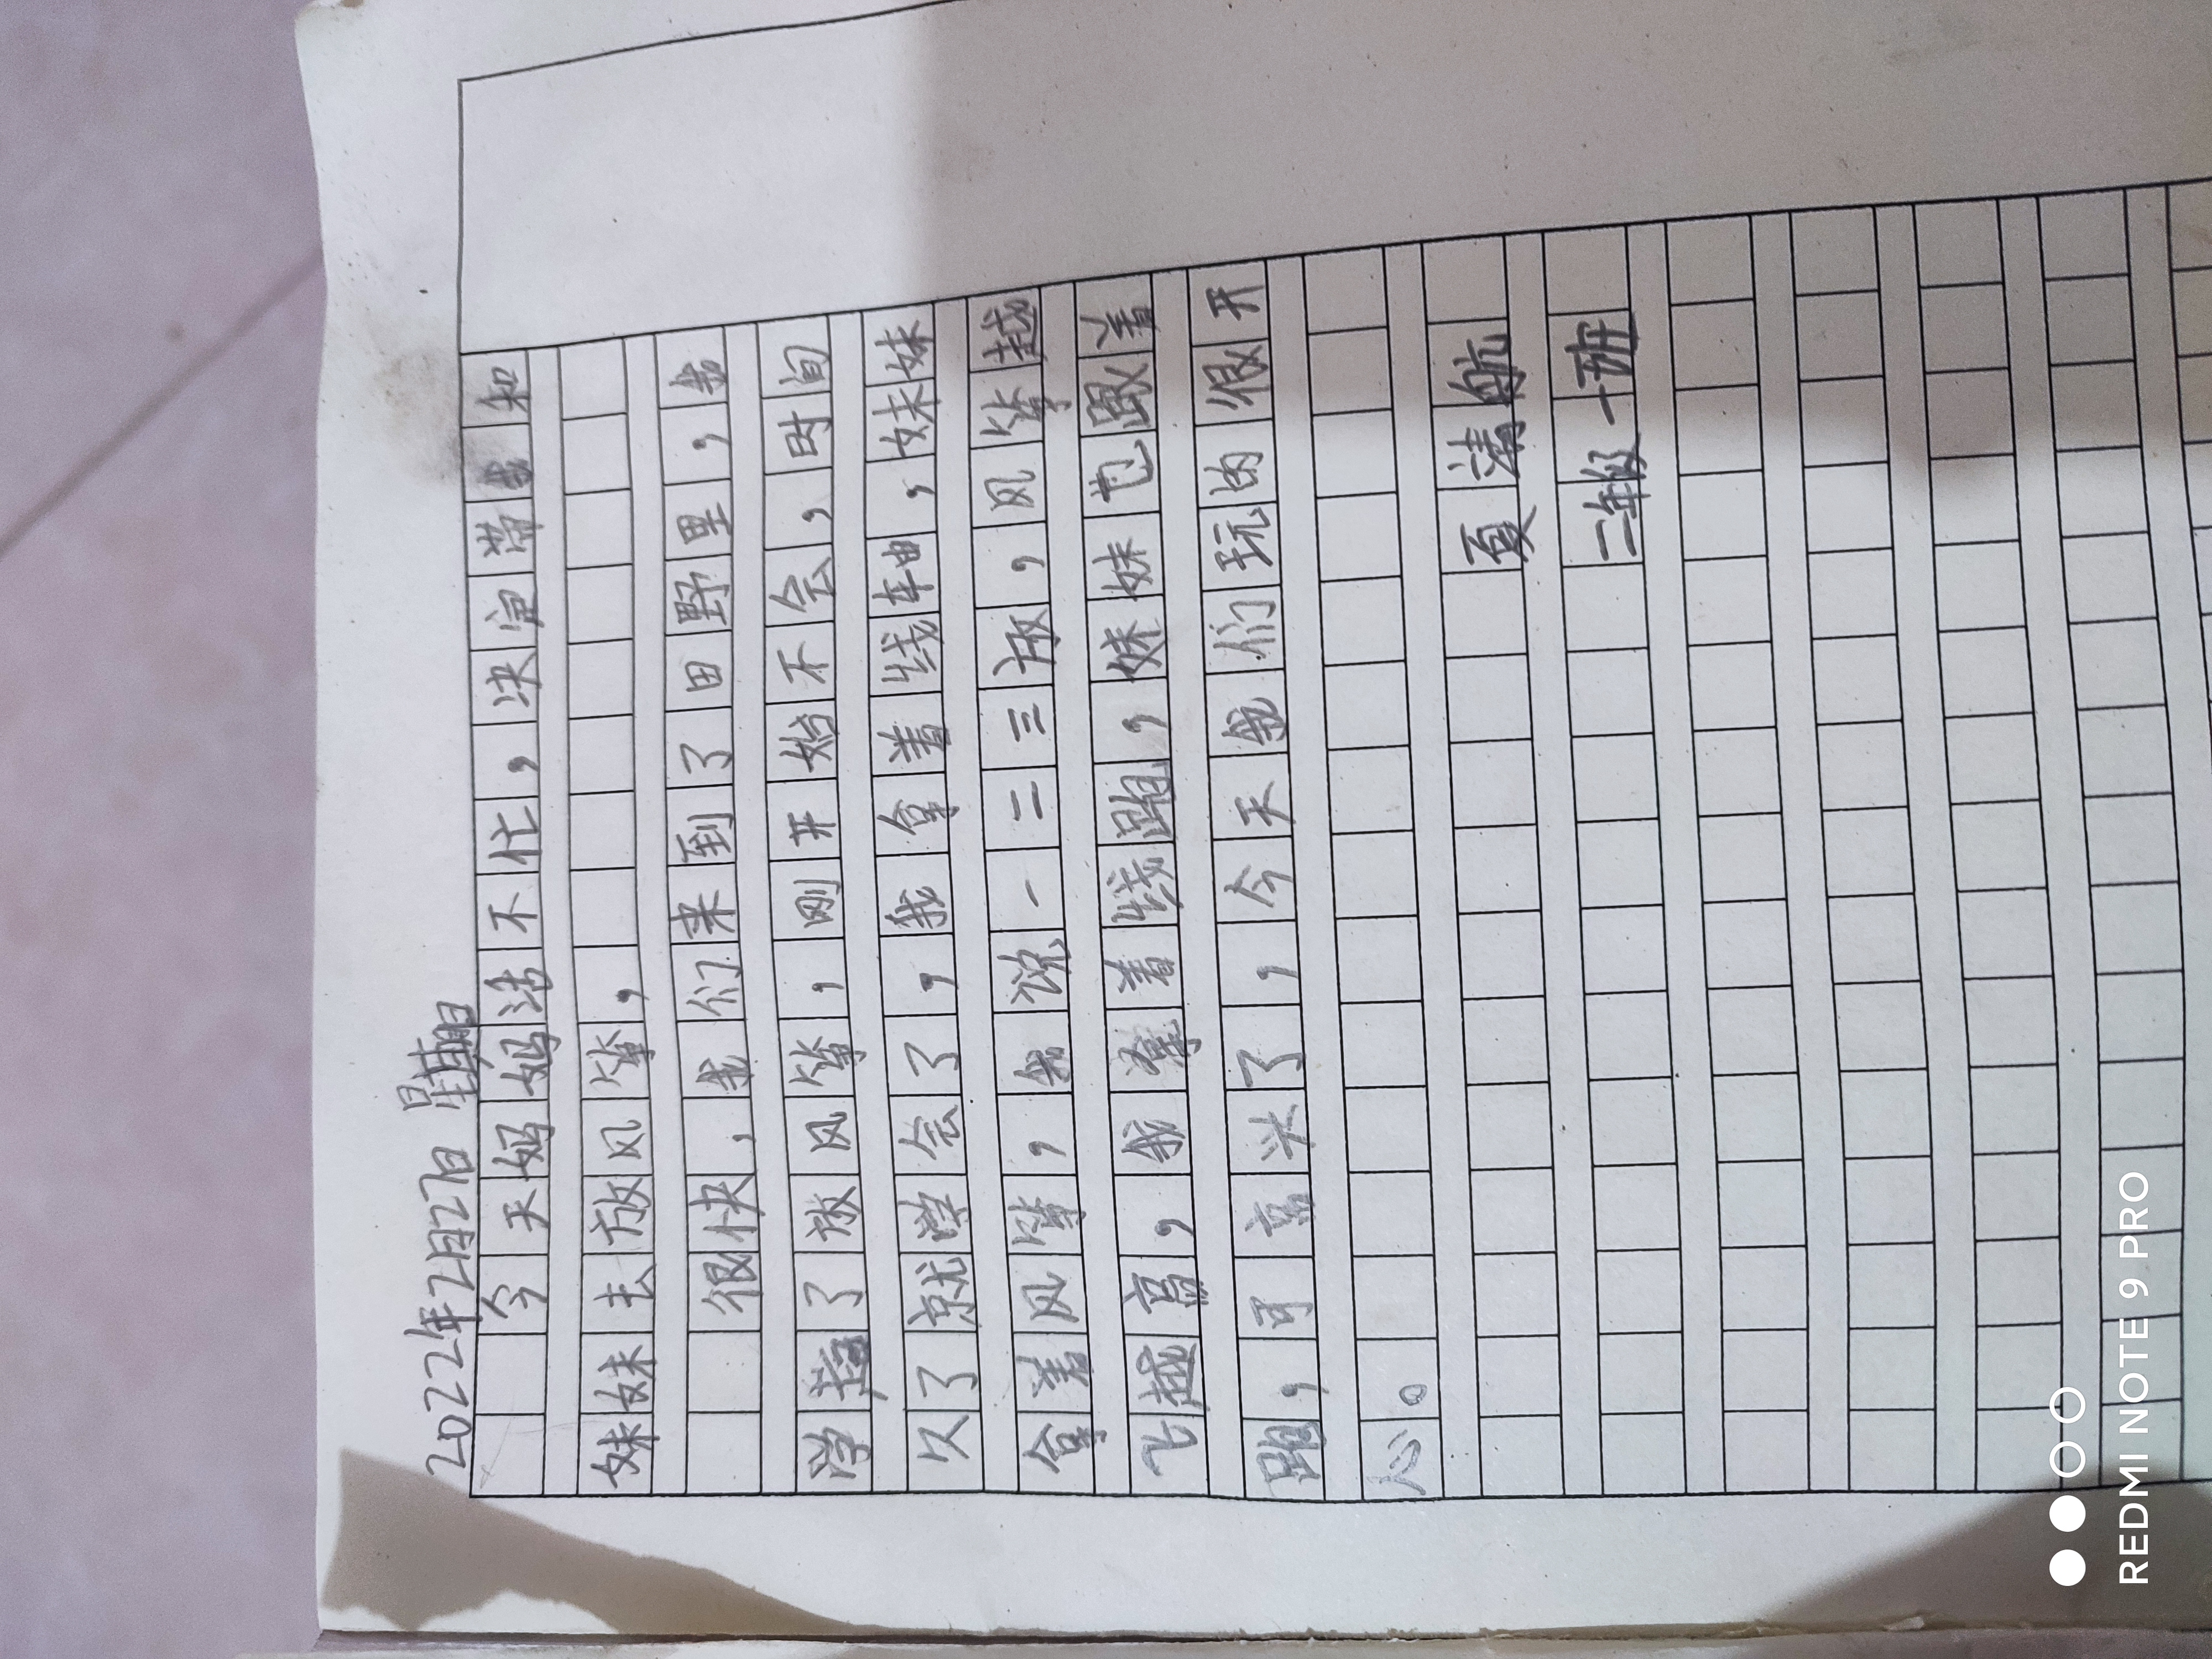 2022年2月27日 星期日
今天妈妈活不忙，决定带我和
妹妹去放风筝，
很快，我们来到了田野里，我
学着了放风筝，刚开始不会，时间
久了就学会了，我拿着线轴，妹妹
拿着风筝，我说一二三放，风筝越
飞越高，我牵着线跑，妹妹也跟着
跑，可高兴了，今天我们玩的很开
心。
夏清航
二年级一班
REDMI NOTE 9 PRO